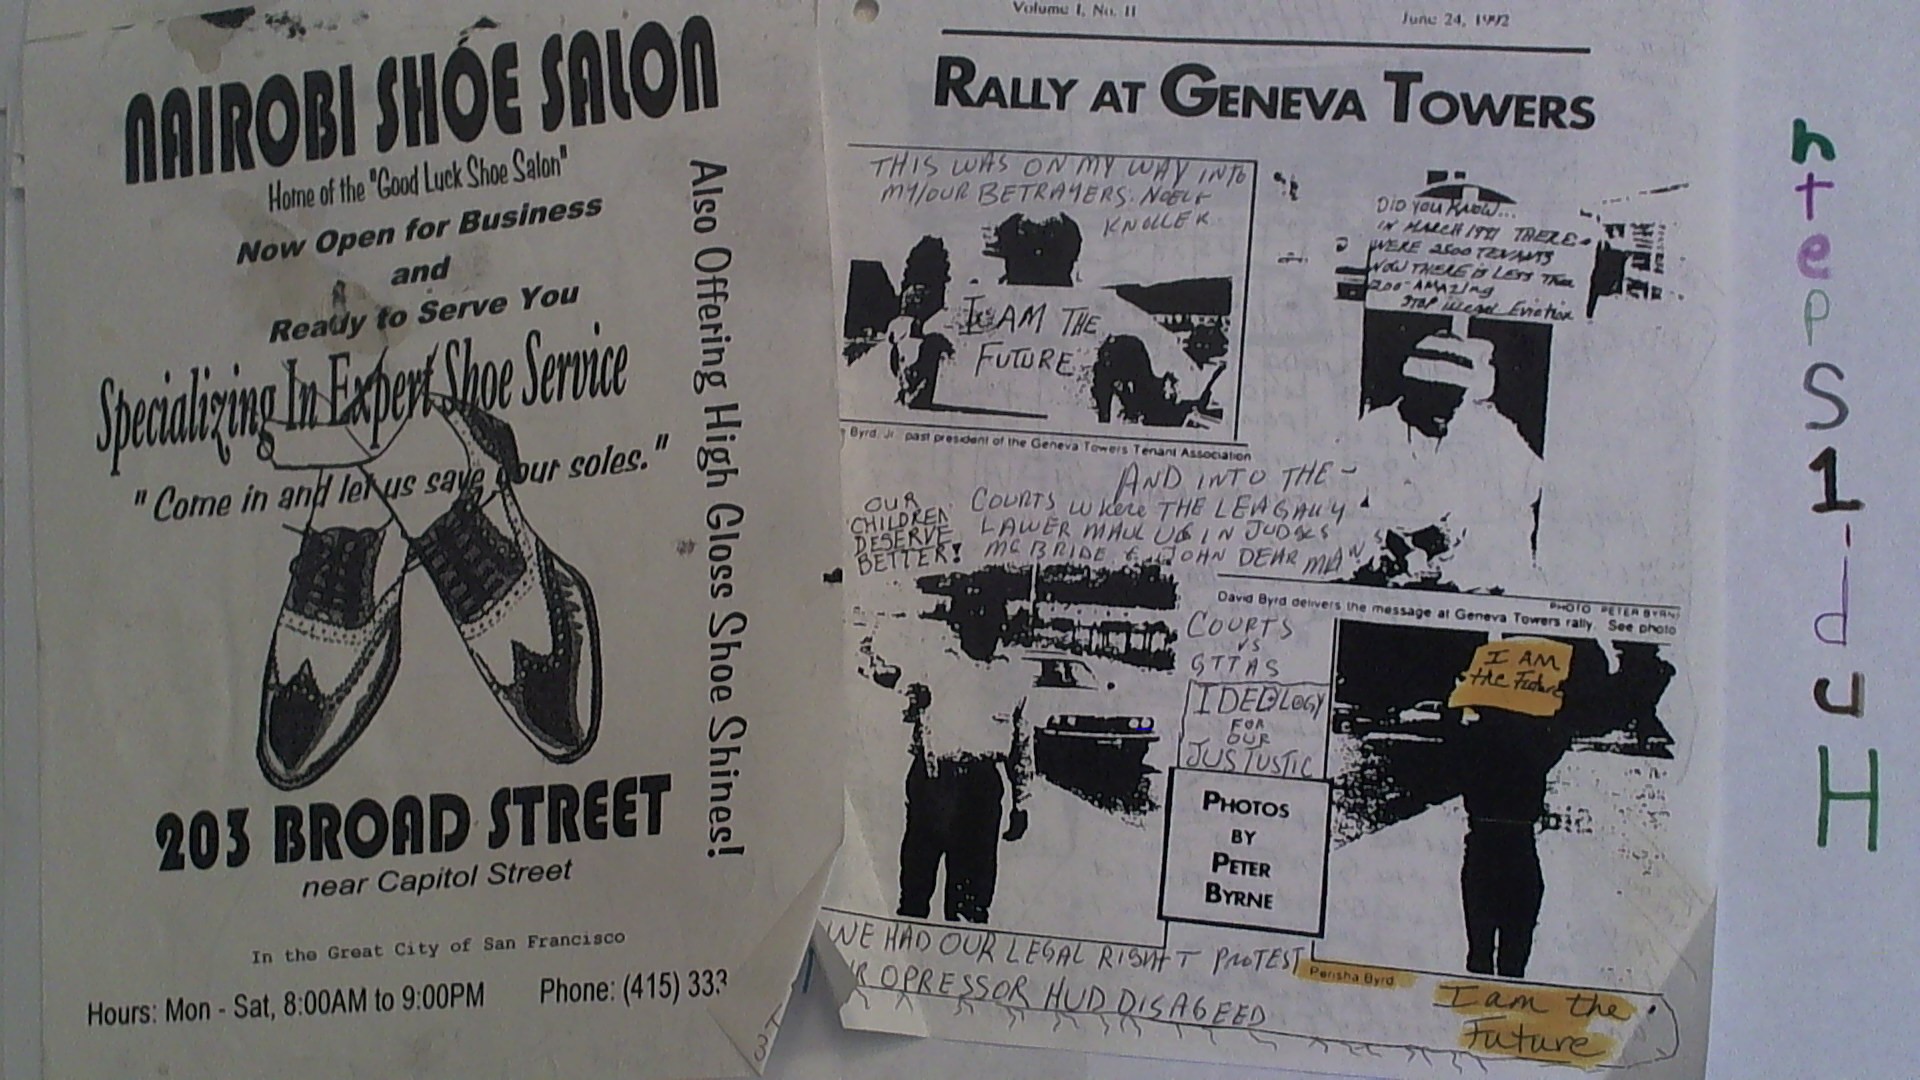 NAIROBI SHOE SALON
Home of the "Good Luck Shoe Salon"
Now Open for Business
and
Ready to Serve You
Specializing In Expert Shoe Service
"Come in and let us save your soles."
Also Offering High Gloss Shoe Shines!
203 BROAD STREET
near Capitol Street
In the Great City of San Francisco
Hours: Mon - Sat, 8:00AM to 9:00PM
Phone: (415) 333
Volume I, No. II
June 24, 1992
RALLY AT GENEVA TOWERS
THIS WAS ON MY WAY INTO
MY/OUR BETRAYERS: NOELF
KNOLLER
I AM THE
FUTURE
Byrd, Jr. past president of the Geneva Towers Tenant Association
DID YOU KNOW...
IN MARCH 1991 THERE
WERE 2500 TENANTS
NOW THERE IS LESS THEN
200-AMAZING
STOP illegal Eviction
AND INTO THE -
COURTS where THE LEAGALLY
LAWER MAUL US IN JUDGES
MC BRIDE & JOHN DEARMAN
OUR
CHILDREN
DESERVE
BETTER!
PHOTO PETER BYRNE
David Byrd delivers the message at Geneva Towers rally. See photo
COURTS
VS
GTTAS
IDEOLOGY
FOR
OUR
JUSTUSTIC
PHOTOS
BY
PETER
BYRNE
I AM
the Future
WE HAD OUR LEGAL RIGHT T PROTEST
R OPRESSOR HUD DISAGEED
Perisha Byrd
I am the
Future
n
t
e
p
S
1
-
d
u
H